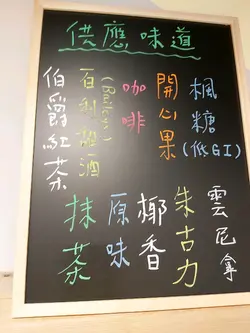 供應味道
伯爵紅茶
百利甜酒
咖啡
開心果
楓糖
(低GI)
抹茶
原味
椰香
朱古力
雲尼拿